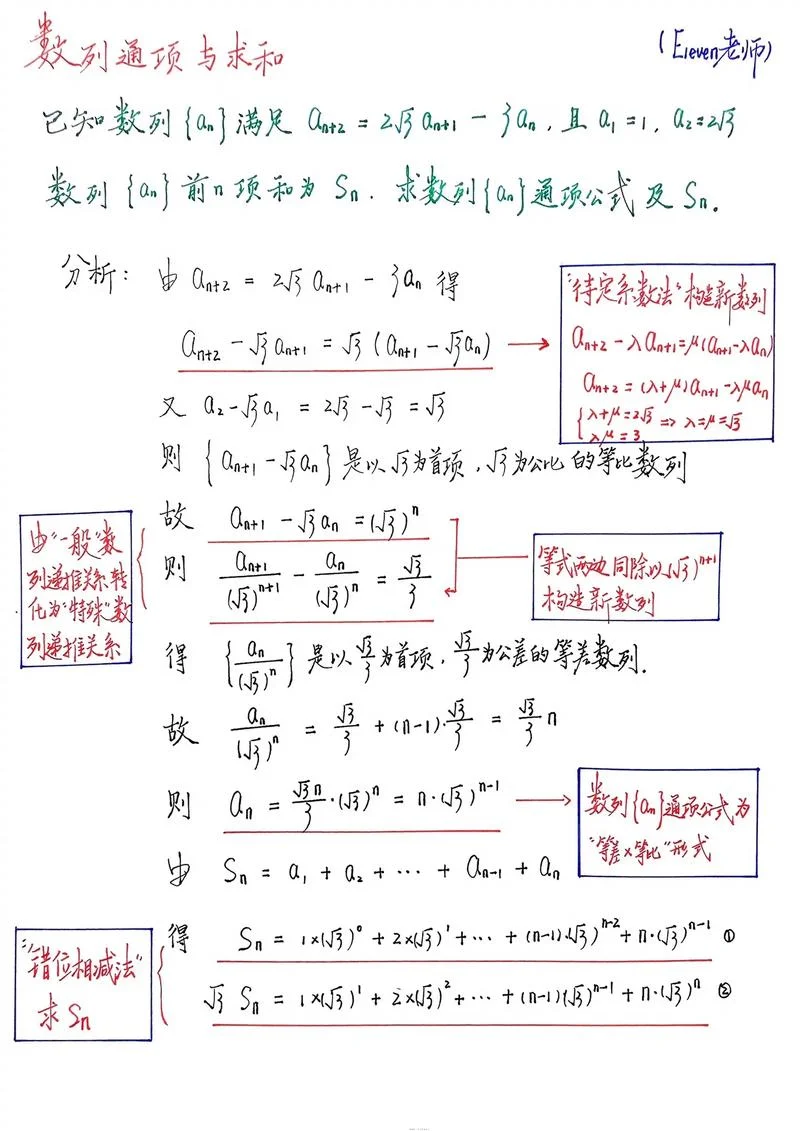 数列通项与求和
(Eleven老师)
已知数列{aₙ}满足 aₙ₊₂ = 2√3 aₙ₊₁ - 3aₙ, 且 a₁ = 1, a₂ = 2√3
数列{aₙ}前n项和为 Sₙ. 求数列{aₙ}通项公式及 Sₙ.
分析: 由 aₙ₊₂ = 2√3 aₙ₊₁ - 3aₙ 得
aₙ₊₂ - √3 aₙ₊₁ = √3 (aₙ₊₁ - √3 aₙ)
"待定系数法"构造新数列
aₙ₊₂ - λaₙ₊₁ = μ(aₙ₊₁ - λaₙ)
aₙ₊₂ = (λ+μ)aₙ₊₁ - λμaₙ
{λ+μ = 2√3
λμ = 3 => λ = μ = √3
又 a₂ - √3 a₁ = 2√3 - √3 = √3
则 {aₙ₊₁ - √3 aₙ} 是以√3为首项, √3为公比的等比数列
故 aₙ₊₁ - √3 aₙ = (√3)ⁿ
则 aₙ₊₁/(√3)ⁿ⁺¹ - aₙ/(√3)ⁿ = √3/3
由"一般"数
列递推关系转
化为"特殊"数
列递推关系
等式两边同除以(√3)ⁿ⁺¹
构造新数列
得 {aₙ/(√3)ⁿ} 是以√3/3为首项, √3/3为公差的等差数列.
故 aₙ/(√3)ⁿ = √3/3 + (n-1)·√3/3 = √3/3 n
则 aₙ = √3n/3 ·(√3)ⁿ = n·(√3)ⁿ⁻¹
数列{aₙ}通项公式为
"等差×等比"形式
由 Sₙ = a₁ + a₂ + ··· + aₙ₋₁ + aₙ
得 Sₙ = 1×(√3)⁰ + 2×(√3)¹ + ··· + (n-1)(√3)ⁿ⁻² + n·(√3)ⁿ⁻¹ ①
√3 Sₙ = 1×(√3)¹ + 2×(√3)² + ··· + (n-1)(√3)ⁿ⁻¹ + n·(√3)ⁿ ②
"错位相减法"
求 Sₙ